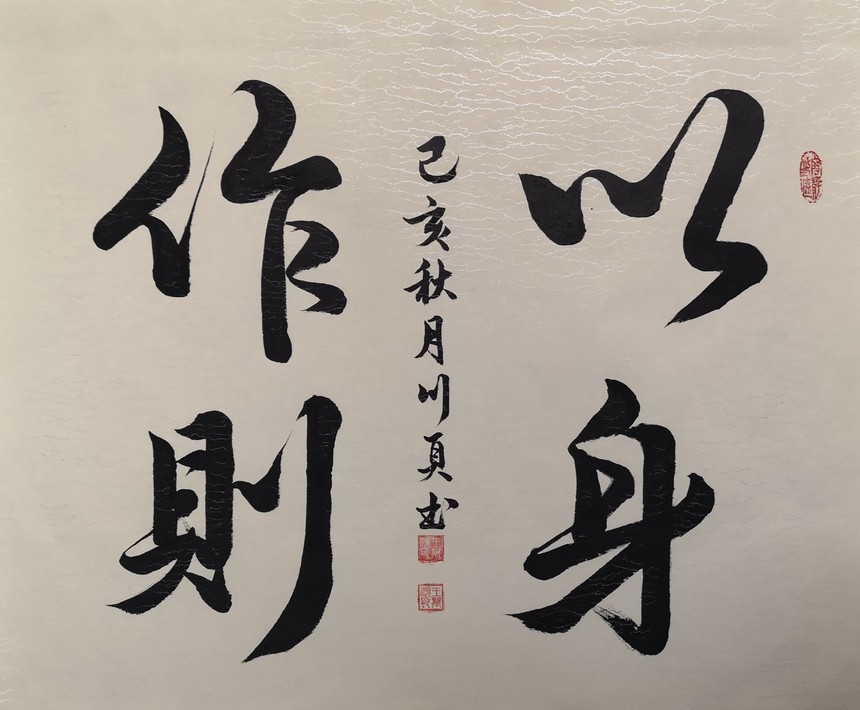 以身
作則
己亥秋月川頁书